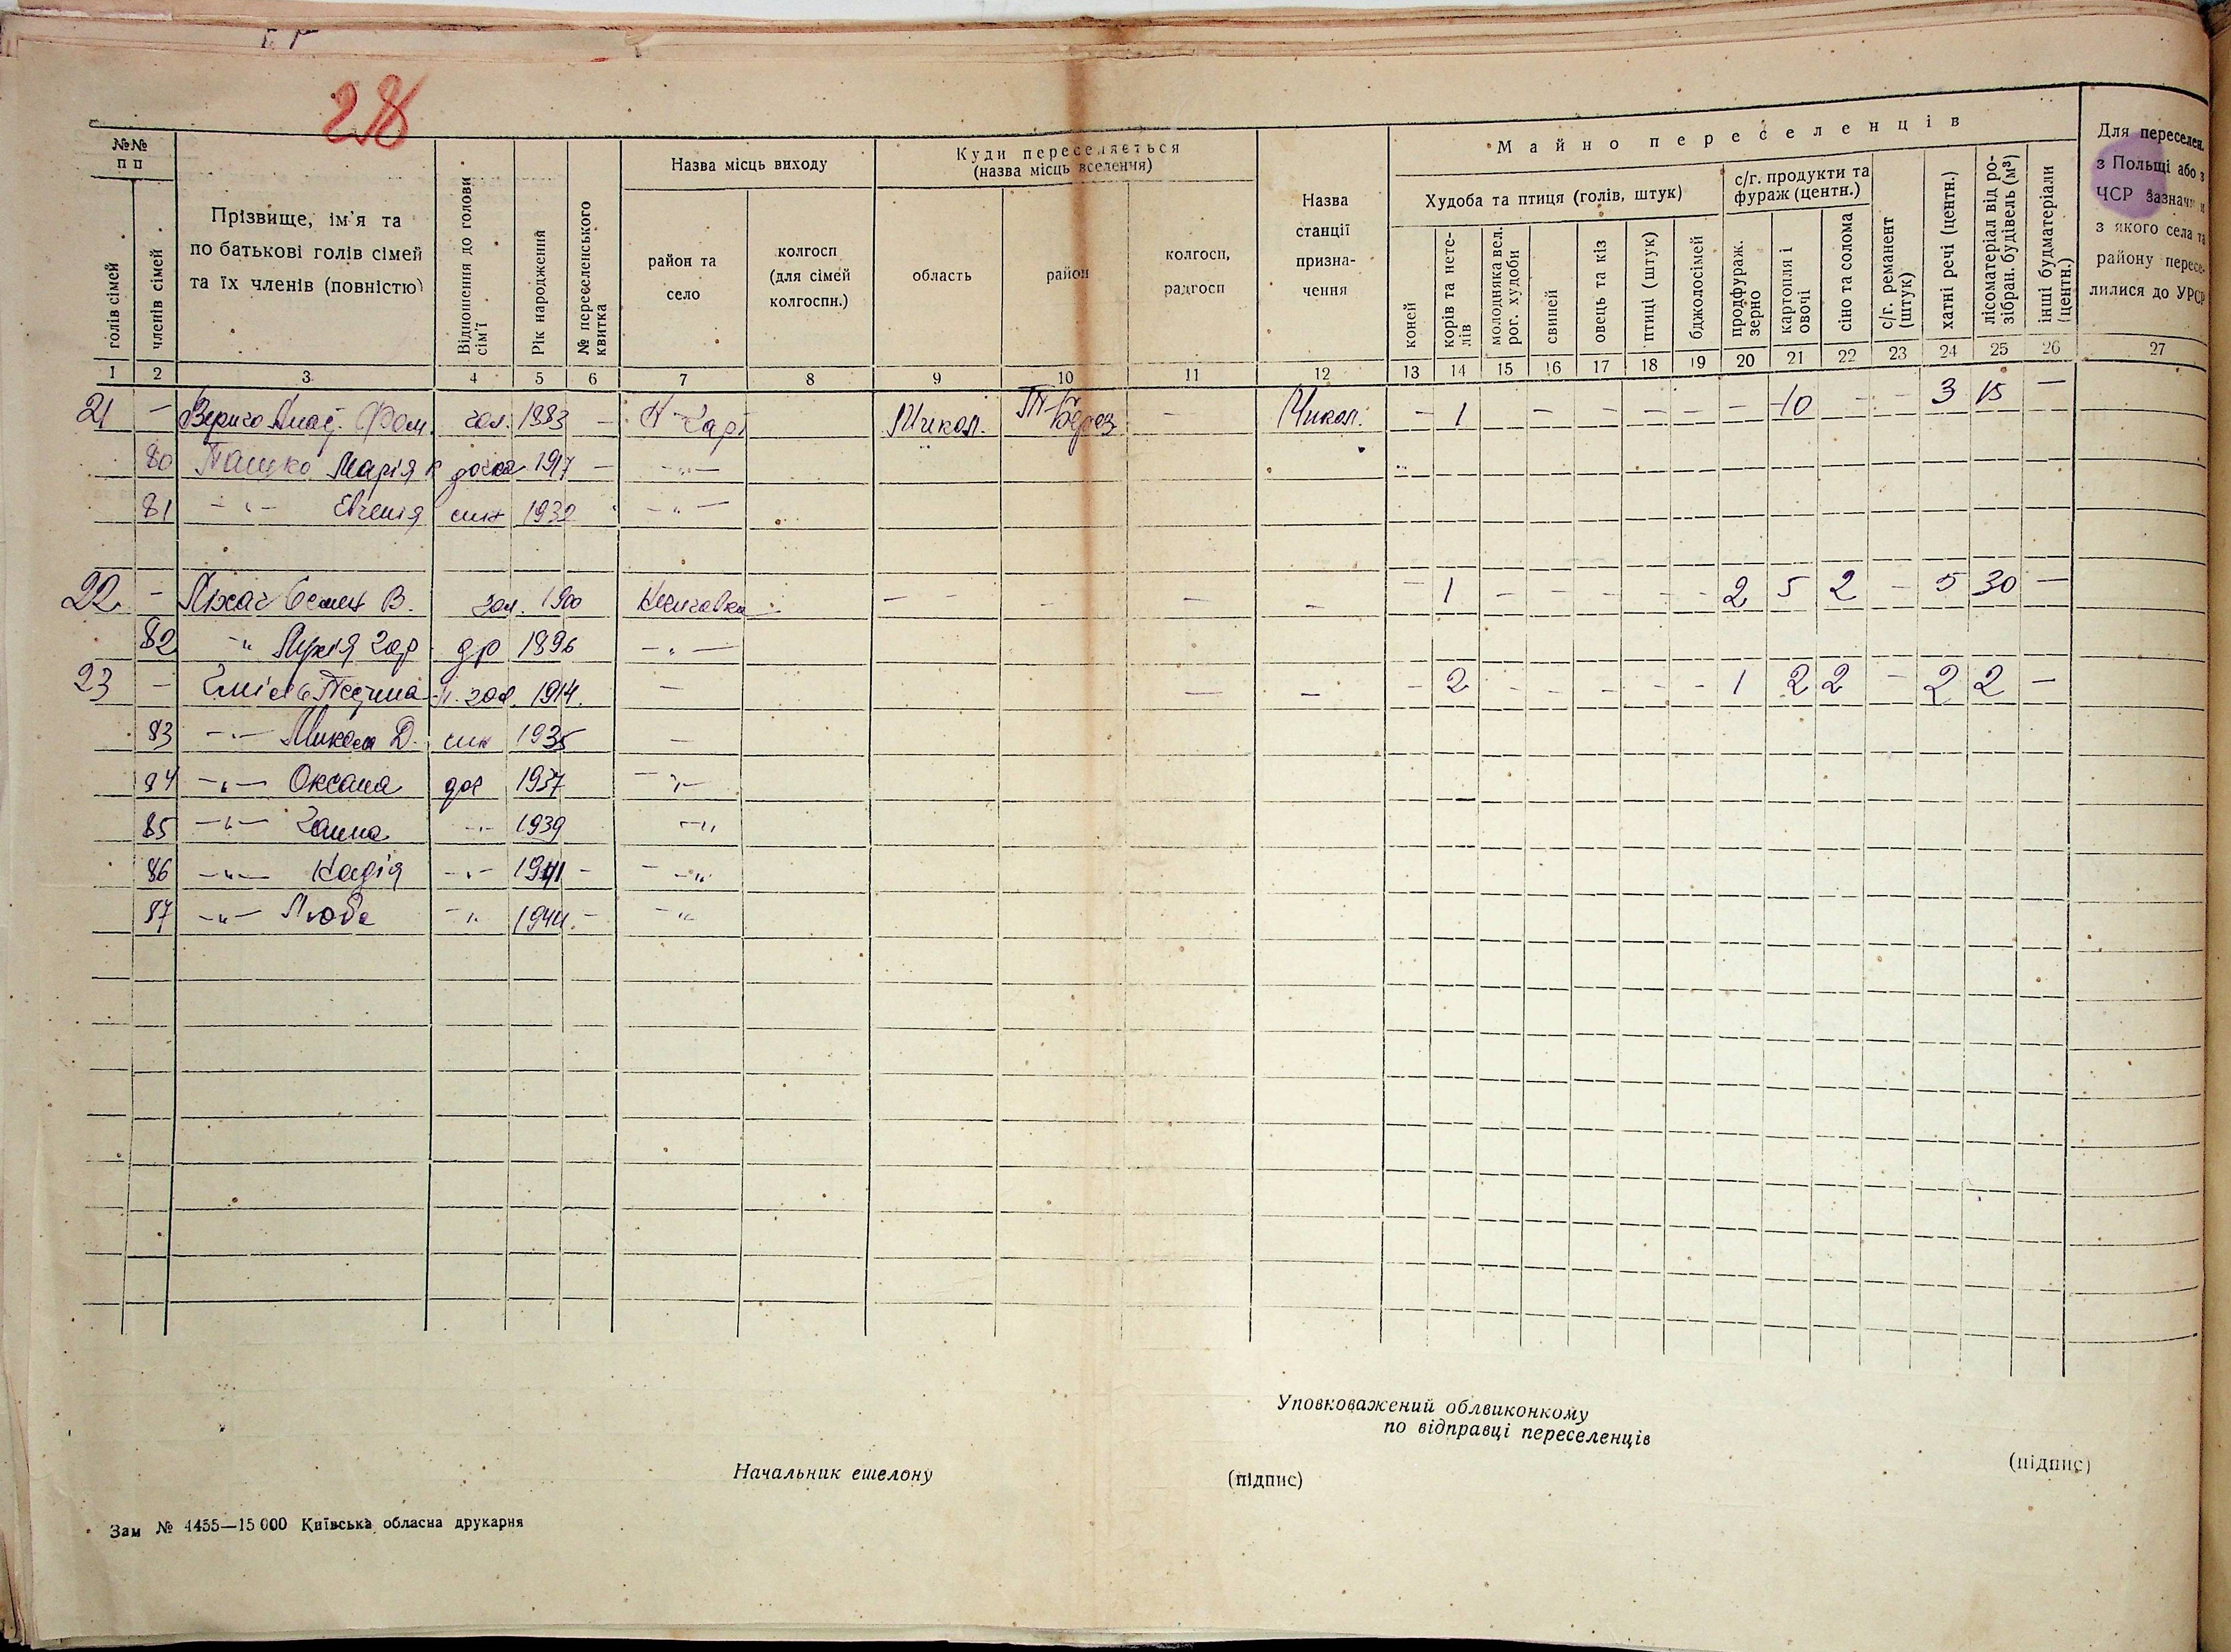 28
№№ п п
голів сімей
членів сімей
Прізвище, ім'я та по батькові голів сімей та їх членів (повністю)
Відношення до голови сім'ї
Рік народження
№ переселенського квитка
Назва місць виходу
район та село
колгосп (для сімей колгоспн.)
Куди переселяється (назва місць вселення)
область
район
колгосп, радгосп
Назва станції призна- чення
Майно переселенців
Худоба та птиця (голів, штук)
коней
корів та нете- лів
молодняка вел. рог. худоби
свиней
овець та кіз
птиці (штук)
бджолосімей
с/г. продукти та фураж (центн.)
продфураж. зерно
картопля і овочі
сіно та солома
с/г. реманент (штук)
хатні речі (центн.)
лісоматеріал від ро- зібран. будівель (м³)
інші будматеріали (центн.)
Для переселен. з Польщі або з ЧСР зазначи и з якого села та району пересе- лилися до УРСР
1 2 3 4 5 6 7 8 9 10 11 12 13 14 15 16 17 18 19 20 21 22 23 24 25 26 27
21 — гол. 1883 — Микол. Т-Берез — Микол. — 1 — — — — — — 10 — — 3 15 —
80 Пацко Марія дочка 1917 — -„-
81 -„- Євгенія син 1932 -„-
22 — Семен В. гол. 1900 — — — — — — 1 — — — — — 2 5 2 — 5 30 —
82 -„ др 1896 -„-
23 — гол. 1914. — — — — 2 — — — — — 1 2 2 — 2 2 —
83 -„- Микола Д. син 1935 —
84 -„- Оксана доч 1937 -„-
85 -„- Ганна -„- 1939 -„
86 -„- Надія -„- 1941 — -„
87 -„- Люба -„ 1944. — -„
Уповковажений облвиконкому
по відправці переселенців
Начальник ешелону (підпис) (підпис)
Зам № 4455—15 000 Київська обласна друкарня